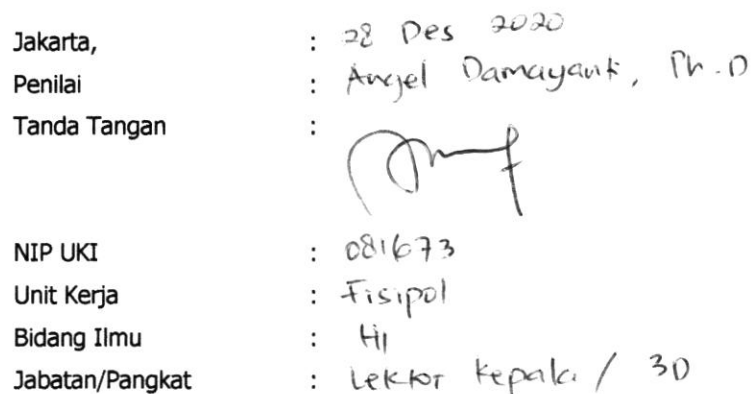 Jakarta, : 28 Des 2020
Penilai : Angel Damayanti, Ph.D
Tanda Tangan :
NIP UKI : 081673
Unit Kerja : Fisipol
Bidang Ilmu : HI
Jabatan/Pangkat : Lektor Kepala / 3D